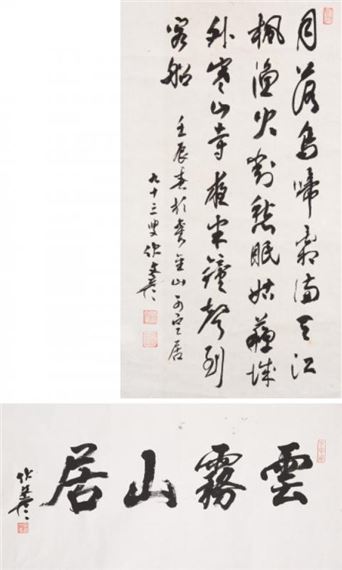 月落烏啼霜滿天江
楓漁火對愁眠姑蘇城
外寒山寺夜半鐘聲到
客船
壬辰春於 山 居
九十三叟
雲霧山居